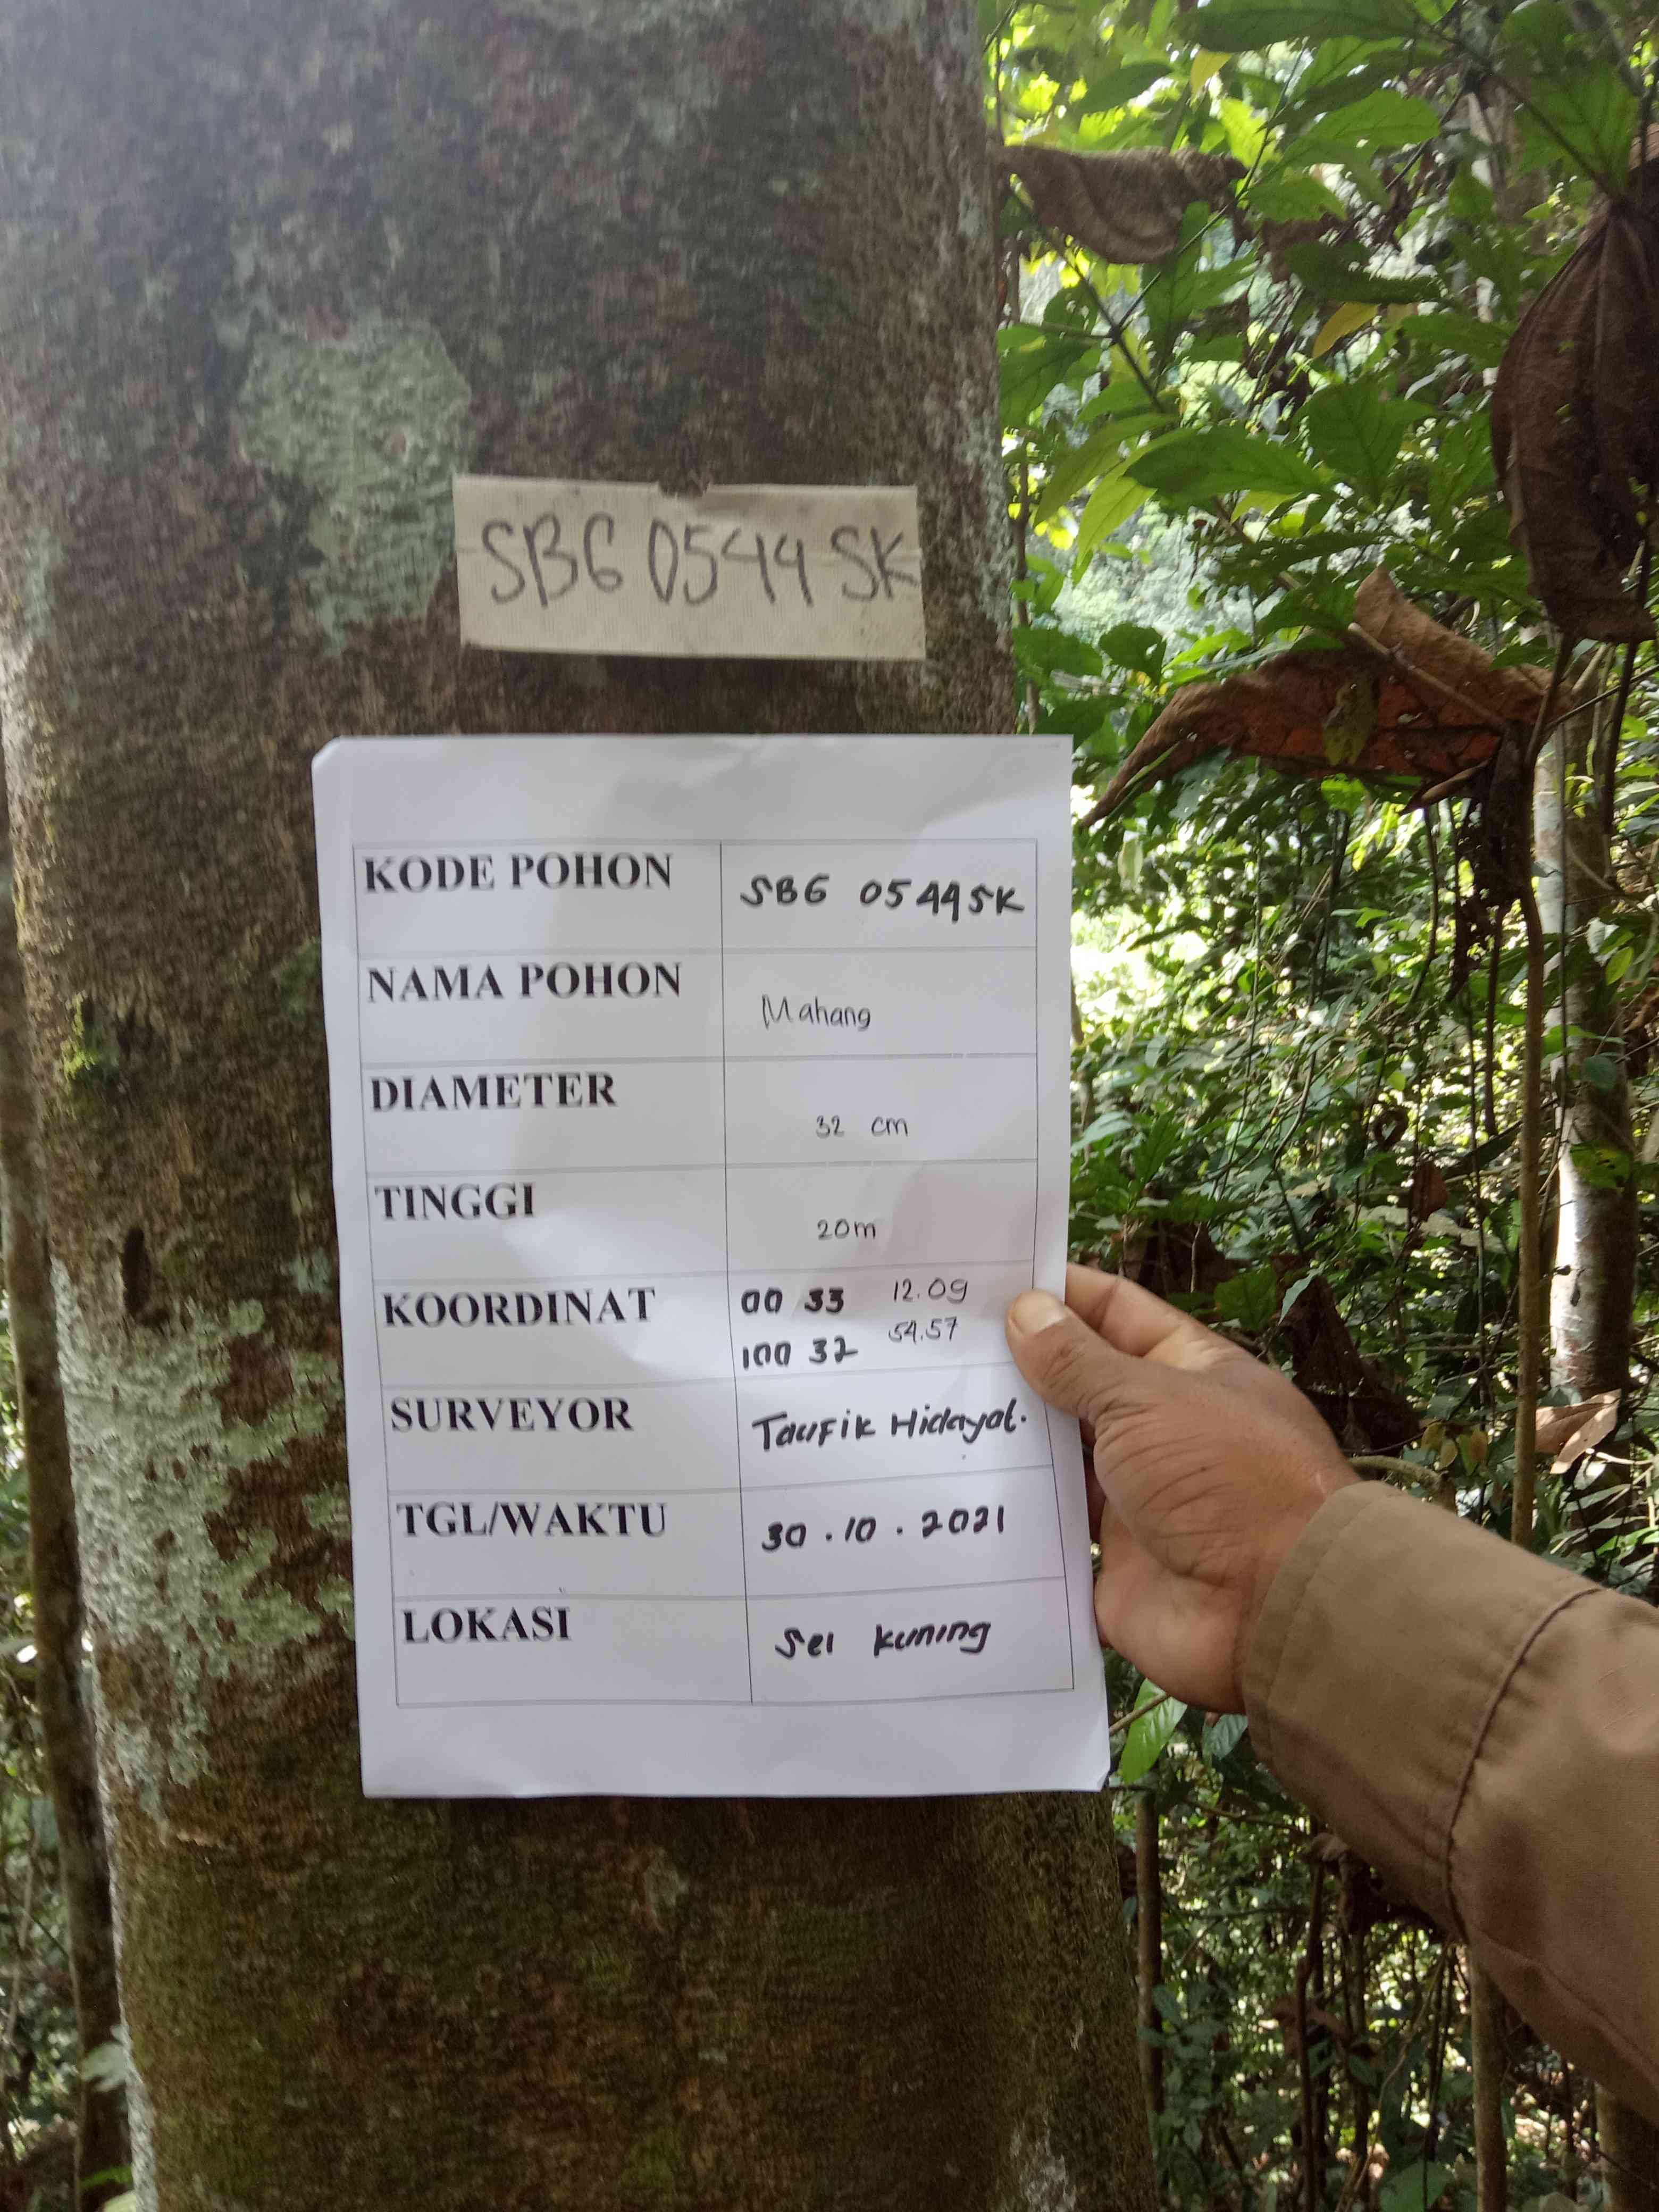 SBG 0544 SK
KODE POHON SBG 0544 SK
NAMA POHON Mahang
DIAMETER 32 cm
TINGGI 20m
KOORDINAT 00 33 12.09
100 32 54.57
SURVEYOR Taufik Hidayat.
TGL/WAKTU 30.10.2021
LOKASI Sei Kuning